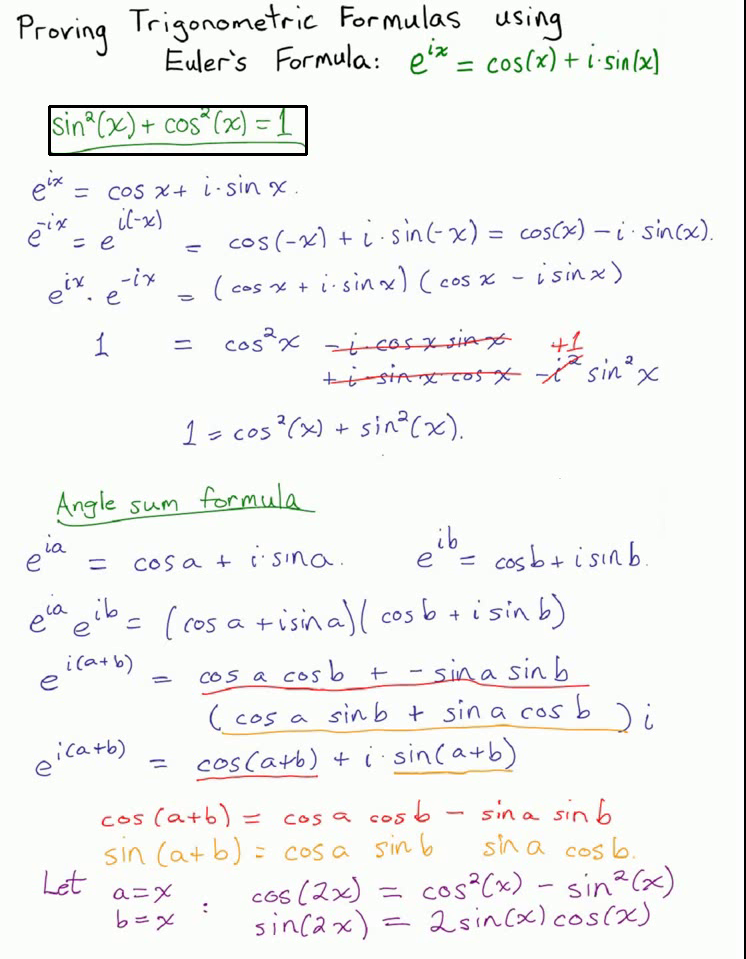 Proving Trigonometric Formulas using
Euler's Formula: e^{ix} = cos(x) + i·sin(x)
sin²(x) + cos²(x) = 1
e^{ix} = cos x + i·sin x.
e^{-ix} = e^{i(-x)} = cos(-x) + i·sin(-x) = cos(x) - i·sin(x).
e^{ix}·e^{-ix} = (cos x + i·sin x)(cos x - i sin x)
1 = cos²x - i·cos x sin x +1
+ i·sin x cos x - i² sin²x
1 = cos²(x) + sin²(x).
Angle sum formula
e^{ia} = cos a + i·sin a. e^{ib} = cos b + i sin b.
e^{ia} e^{ib} = (cos a + i sin a)(cos b + i sin b)
e^{i(a+b)} = cos a cos b + - sin a sin b
(cos a sin b + sin a cos b) i
e^{i(a+b)} = cos(a+b) + i·sin(a+b)
cos(a+b) = cos a cos b - sin a sin b
sin(a+b) = cos a sin b sin a cos b.
Let a=x : cos(2x) = cos²(x) - sin²(x)
b=x sin(2x) = 2sin(x)cos(x)